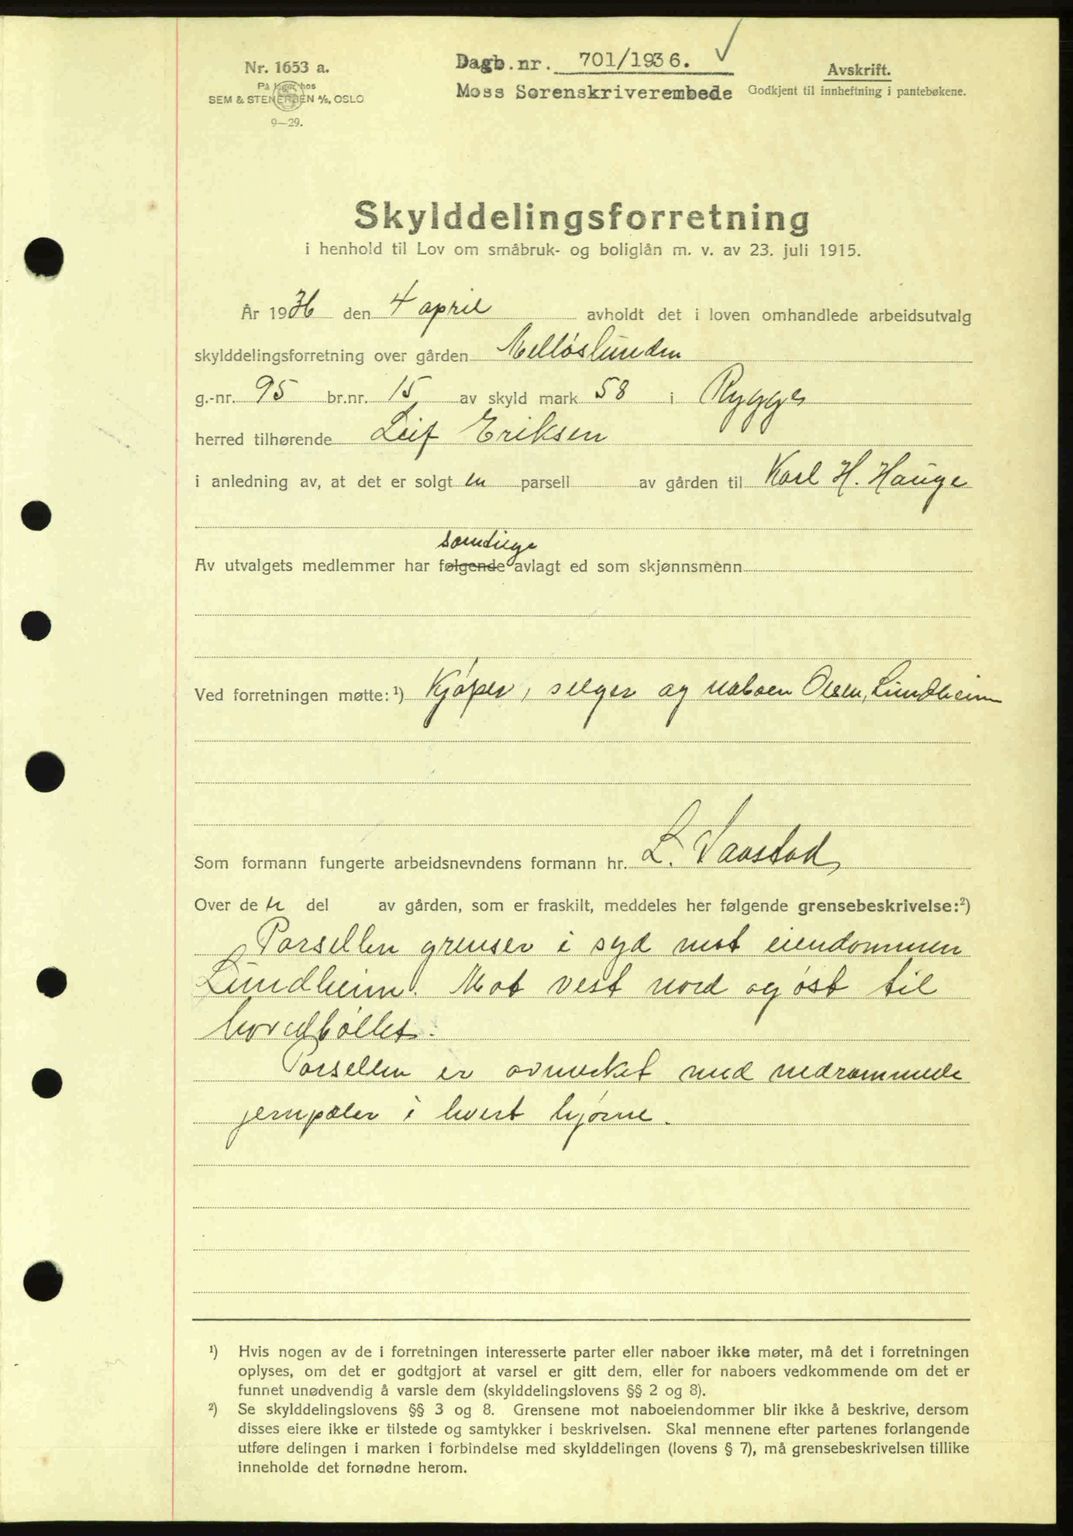 Nr. 1653 a.
På lager hos
SEM & STENERSEN A/S, OSLO
9—29.
Dagb.nr. 701/1936.
Moss Sorenskriverembede
Avskrift.
Godkjent til innheftning i pantebøkene.
Skylddelingsforretning
i henhold til Lov om småbruk- og boliglån m. v. av 23. juli 1915.
År 1936 den 4 april avholdt det i loven omhandlede arbeidsutvalg
skylddelingsforretning over gården Melløslunden
g.-nr. 95 br.nr. 15 av skyld mark 58 i Rygge
herred tilhørende Leif Eriksen
i anledning av, at det er solgt en parsell av gården til Karl H. Hauge
samtlige
Av utvalgets medlemmer har følgende avlagt ed som skjønnsmenn
Ved forretningen møtte:¹) Kjøper, selger og naboen Olsen, Lundheim
Som formann fungerte arbeidsnevndens formann hr. L. Vaastad
Over den del av gården, som er fraskilt, meddeles her følgende grensebeskrivelse:²)
Parsellen grenser i syd mot eiendommen
Lundheim. Mot vest nord og øst til
hovedbøllet.
Parsellen er avmerket med nedrammede
jernpæler i hvert hjørne.
¹) Hvis nogen av de i forretningen interesserte parter eller naboer ikke møter, må det i forretningen
oplyses, om det er godtgjort at varsel er gitt dem, eller for naboers vedkommende om det er
funnet unødvendig å varsle dem (skylddelingslovens §§ 2 og 8).
²) Se skylddelingslovens §§ 3 og 8. Grensene mot naboeiendommer blir ikke å beskrive, dersom
disses eiere ikke er tilstede og samtykker i beskrivelsen. Skal mennene efter partenes forlangende
utføre delingen i marken i forbindelse med skylddelingen (lovens § 7), må grensebeskrivelsen tillike
inneholde det fornødne herom.